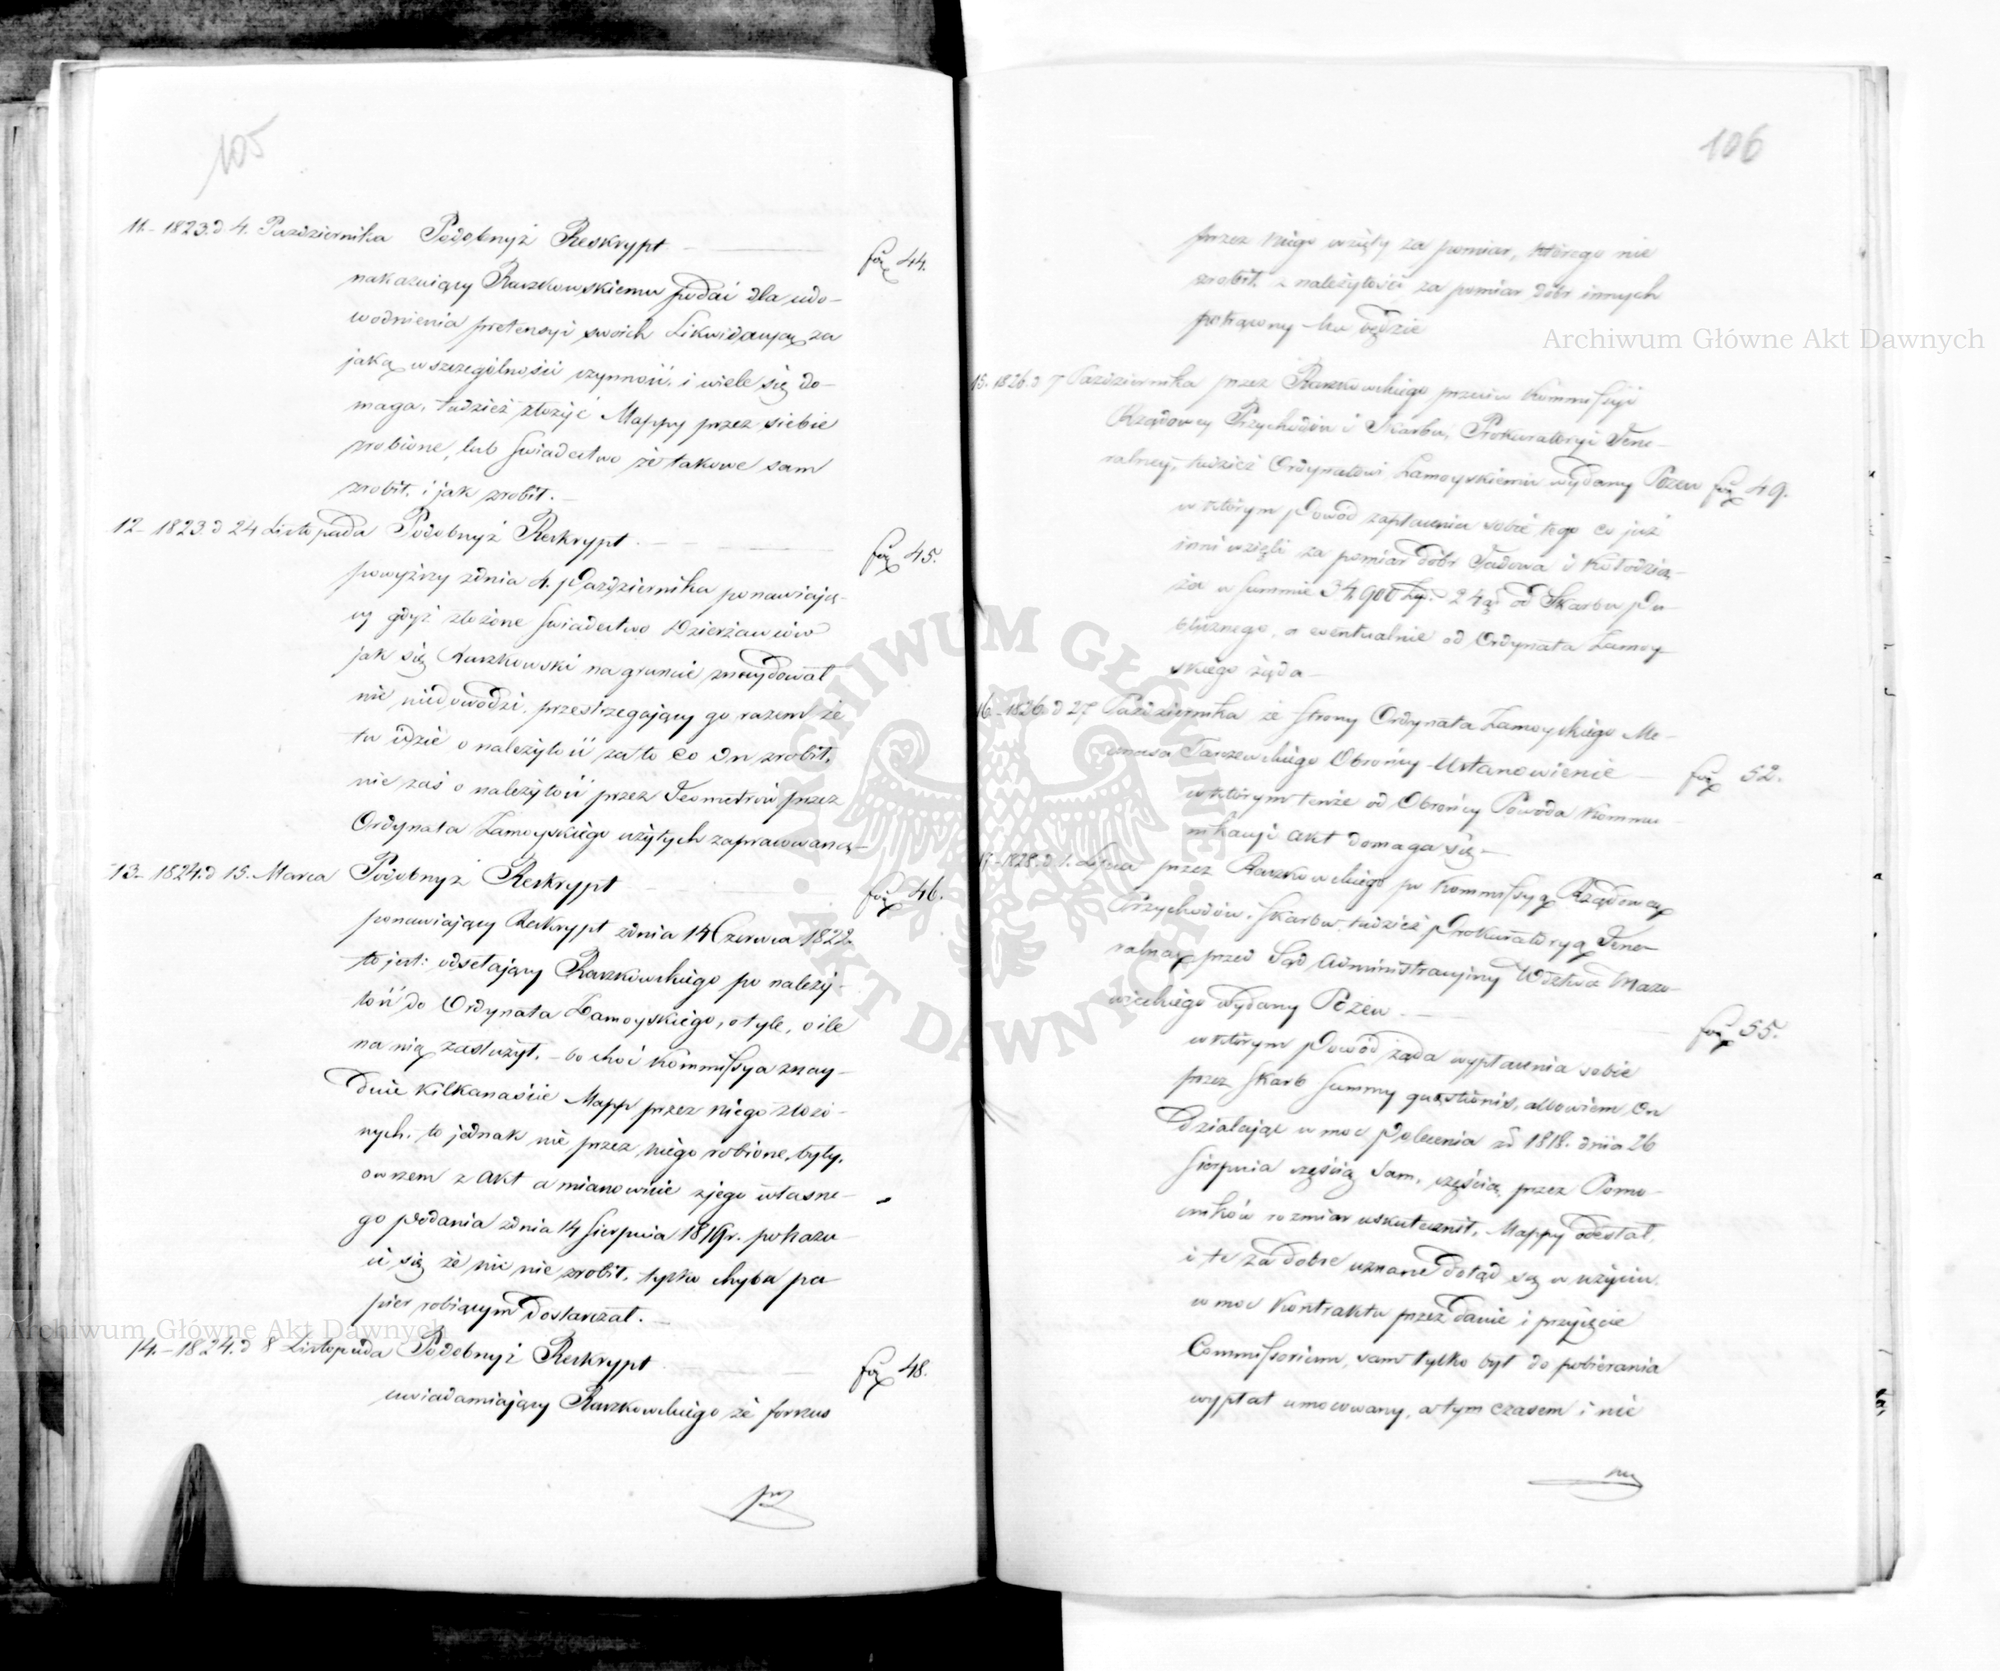 105
11. – 1823. d. 4. Pazdziernika Podobnyż Reskrypt
fol 44.
nakazuiący Raszkowskiemu podać dla udo-
wodnienia pretensyi swoich Likwidacyą za
jaką w szczególności czynność, i wiele się do-
maga, tudzież złożyć Mappy przez siebie
zrobione, lub świadectwo że takowe sam
zrobił, i jak zrobił. –
12 – 1823. d 24 Listopada Podobnyż Reskrypt
fol 45.
powyższy z dnia 4. Pazdziernika ponawiają-
cy gdyż złożone świadectwo Dzierżawców
jak się Raszkowski na gruncie znaydował
nic niedowodzi, przestrzegający go razem że
tu idzie o należytość za to co on zrobił,
nie zaś o należytość przez Jeometrów przez
Ordynata Zamoyskiego użytych zapracowaną –
13 – 1824. d 15. Marca Podobnyż Reskrypt
fol 46.
ponawiający Reskrypt z dnia 14 Czerwca 1822.
to jest: odsełający Raszkowskiego po należy-
tość do Ordynata Zamoyskiego, o tyle, o ile
na nią zasłużył, – bo choć Kommissya znay-
duie kilkanaście Mapp przez niego złożo-
nych, to jednak nie przez niego robione były,
owszem z akt a mianowicie z jego własne-
go podania z dnia 14 Sierpnia 1819 r. pokazu-
ie się że nic nie zrobił, tylko chyba pa-
pier robiącym dostarczał. –
14. – 1824. d 8 Listopada Podobnyż Reskrypt
fol 48.
uwiadamiający Raszkowskiego że forszus
106
przez niego wzięty za pomiar, którego nie
zrobił, z należytości za pomiar dóbr innych
potrącony mu będzie
15. 1826. d 7 Pazdziernika przez Raszkowskiego przeciw Kommissyi
Rządowey Przychodów i Skarbu, Prokuratoryi Jene-
ralney, tudzież Ordynatowi Zamoyskiemu wydany Pozew fol 49.
w którym Powód zapłacenia sobie tego co już
inni wzięli za pomiar dóbr Tadowa i Kołodzią-
ża w summie 34,900 Zł. 24 gr od Skarbu Pu-
blicznego, a eventualnie od Ordynata Zamoy
skiego żąda –
16 – 1826. d 27 Pazdziernika ze strony Ordynata Zamoyskiego Me-
cenasa Tarzewskiego Obrońcy Ustanowienie
fol 52.
w którym tenże od Obrońcy Powoda kommu
nikacyi akt domaga się –
17 – 1828. d 1. Lipca przez Raszkowskiego po Kommissyą Rządową
Przychodów i Skarbu, tudzież Prokuratoryą Jene-
ralną przed Sąd Administracyiny Wdztwa Mazo-
wieckiego wydany Pozew. –
fol 55.
w którym Powód żąda wypłacenia sobie
przez Skarb Summy quæstionis, albowiem On
działając w moc Polecenia z d 1818. dnia 26
Sierpnia częścią sam, częścią przez Pomo-
cników rozmiar uskutecznił, Mappy odesłał,
i te za dobre uznane dotąd są w użyciu.
w moc Kontraktu przez danie i przyięcie
Commissorium, sam tylko był do pobierania
wypłat umocowany, a tym czasem i nie
Archiwum Główne Akt Dawnych
Archiwum Główne Akt Dawnych
ARCHIWUM GŁÓWNE AKT DAWNYCH